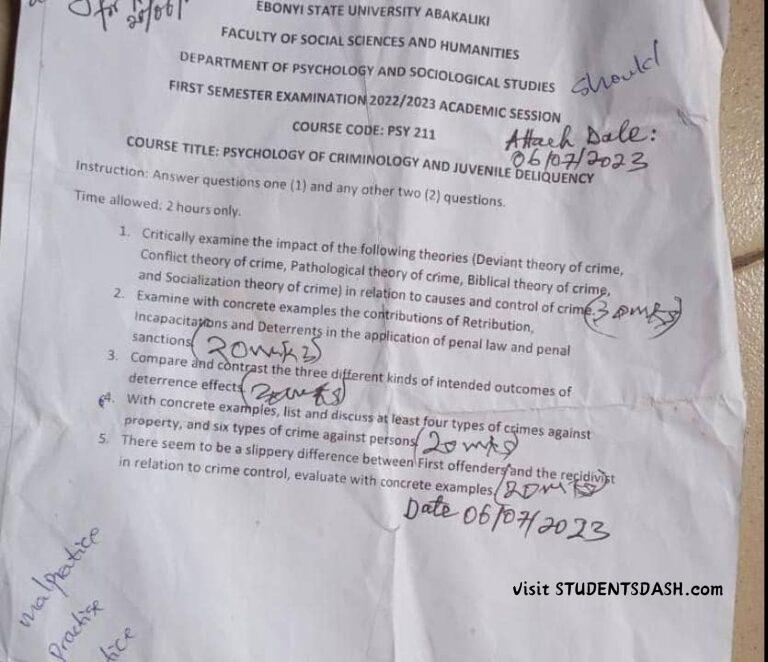 for
EBONYI STATE UNIVERSITY ABAKALIKI
FACULTY OF SOCIAL SCIENCES AND HUMANITIES
DEPARTMENT OF PSYCHOLOGY AND SOCIOLOGICAL STUDIES
should
FIRST SEMESTER EXAMINATION 2022/2023 ACADEMIC SESSION
COURSE CODE: PSY 211
Attach Date:
06/07/2023
COURSE TITLE: PSYCHOLOGY OF CRIMINOLOGY AND JUVENILE DELIQUENCY
Instruction: Answer questions one (1) and any other two (2) questions.
Time allowed: 2 hours only.
1. Critically examine the impact of the following theories (Deviant theory of crime,
Conflict theory of crime, Pathological theory of crime, Biblical theory of crime,
and Socialization theory of crime) in relation to causes and control of crime. (30mks)
2. Examine with concrete examples the contributions of Retribution,
Incapacitations and Deterrents in the application of penal law and penal
sanctions (20mks)
3. Compare and contrast the three different kinds of intended outcomes of
deterrence effects (20mks)
4. With concrete examples, list and discuss at least four types of crimes against
property, and six types of crime against persons (20mks)
5. There seem to be a slippery difference between First offenders and the recidivist
in relation to crime control, evaluate with concrete examples (20mks)
Date 06/07/2023
malpratice
Practise
tice
Visit STUDENTSDASH.com